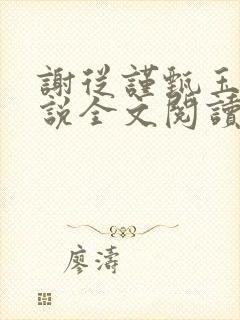 謝從謹甄玉
說全文閱讀
廖濤